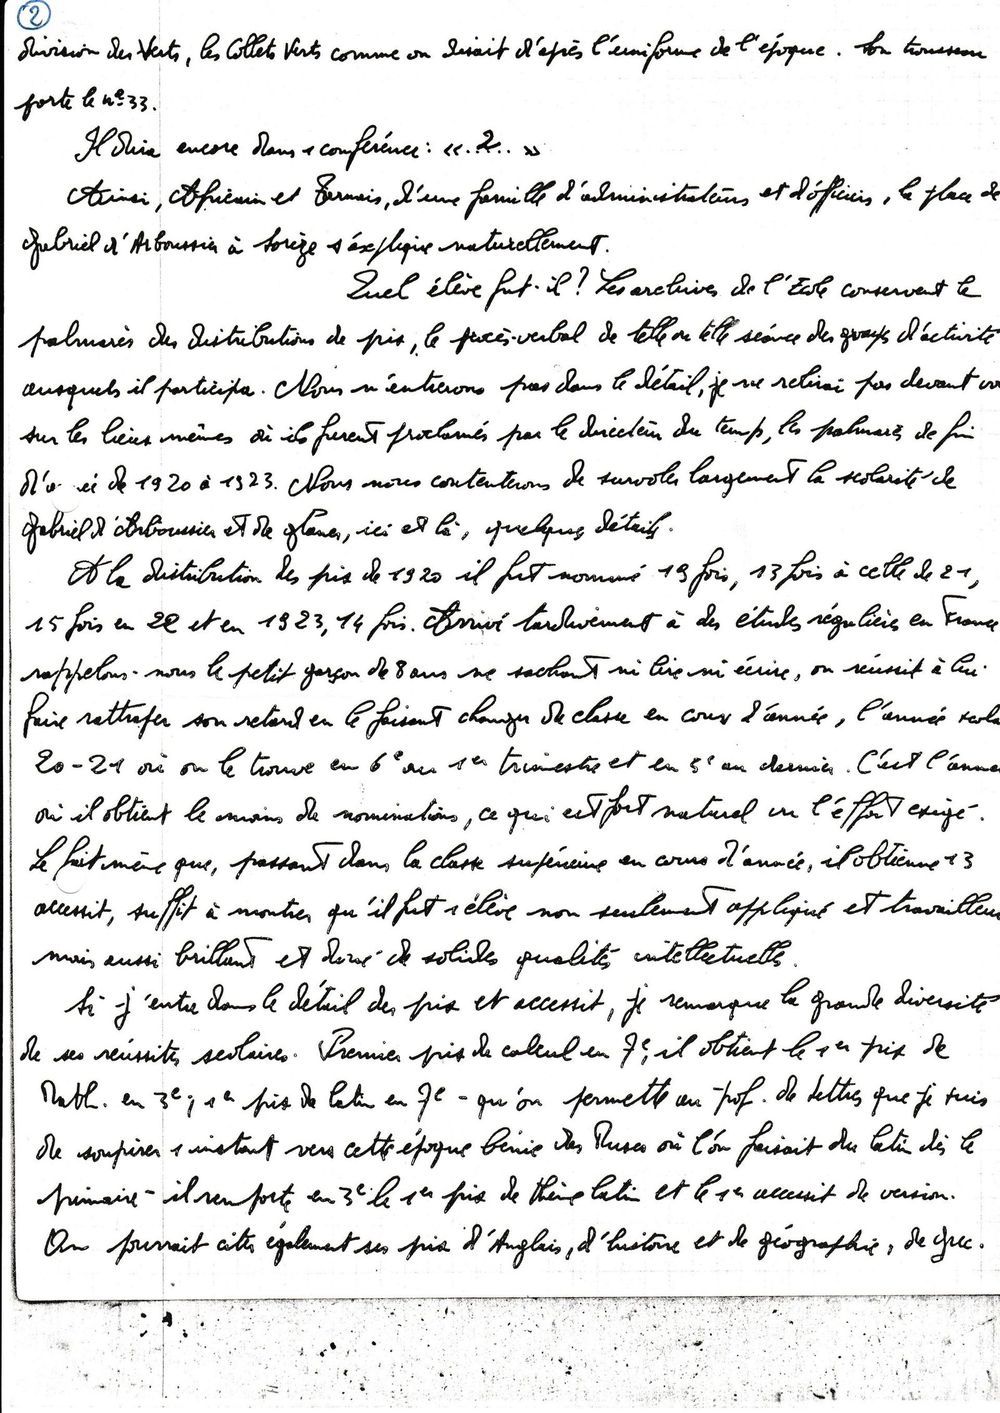 2
division des Verts, les Collets Verts comme on disait d'après l'uniforme de l'époque. Son trousseau
porte le n° 33.
Il dira encore dans 1 conférence : «.2..»
Ainsi, Africain et Tarnais, d'une famille d'administrateurs et d'officiers, la place de
Gabriel d'Arboussier à Sorèze s'explique naturellement.
Quel élève fut-il ? Les archives de l'Ecole conservent le
palmarès des distributions de prix, le procès-verbal de telle ou telle séance des groupes d'activité
auxquels il participa. Nous n'entrerons pas dans le détail, je ne relirai pas devant vo
sur les lieux mêmes où ils furent proclamés par le directeur du temps, les palmarès de fin
d'a ée de 1920 à 1923. Nous nous contenterons de survoler largement la scolarité de
Gabriel d'Arboussier et de glaner, ici et là, quelques détails.
A la distribution des prix de 1920 il fut nommé 19 fois, 13 fois à celle de 21,
15 fois en 22 et en 1923, 14 fois. Arrivé tardivement à des études régulières en France
rappelons-nous le petit garçon de 8 ans ne sachant ni lire ni écrire, on réussit à lui
faire rattraper son retard en le faisant changer de classe en cours d'année, l'année scola
20-21 où on le trouve en 6e au 1er trimestre et en 5e au dernier. C'est l'année
où il obtient le moins de nominations, ce qui est fort naturel vu l'effort exigé.
Le fait même que, passant dans la classe supérieure en cours d'année, il obtienne 13
accessit, suffit à montrer qu'il fut 1 élève non seulement appliqué et travailleur
mais aussi brillant et doué de solides qualités intellectuelles.
Si j'entre dans le détail des prix et accessit, je remarque la grande diversité
de ses réussites scolaires. Premier prix de calcul en 7e, il obtient le 1er prix de
Math. en 3e ; 1er prix de latin en 7e - qu'on permette au prof. de Lettres que je suis
de soupirer 1 instant vers cette époque bénie des Muses où l'on faisait du latin dès le
primaire - il remporte en 3e le 1er prix de thème latin et le 1er accessit de version.
On pourrait citer également ses prix d'Anglais, d'histoire et de géographie, de Grec.